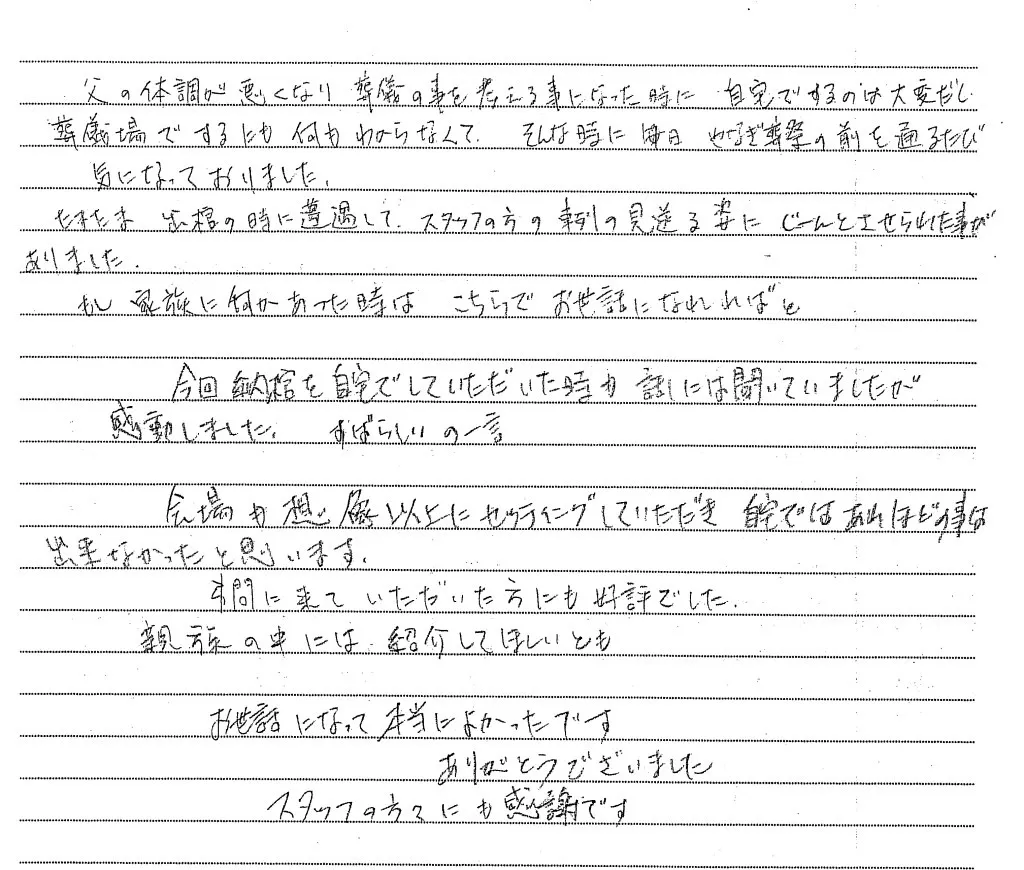 父の体調が悪くなり 葬儀の事を考える事になった時に 自宅でするのは大変だし
葬儀場でするにも何もわからなくて、そんな時に毎日 やなぎ葬祭の前を通るたび
気になっておりました。
たまたま 出棺の時に遭遇して、スタッフの方の一列の見送る姿に じーんとさせられた事が
ありました。
もし 家族に何かあった時は こちらで お世話になれればと
今回納棺を自宅でしていただいた時も 話しには聞いていましたが
感動しました。 すばらしいの一言
会場も想像以上にセッティングしていただき 自宅ではあれほどの事は
出来なかったと思います。
弔問に来ていただいた方にも好評でした。
親族の中には、紹介してほしいとも
お世話になって本当によかったです
ありがとうございました
スタッフの方々にも感謝です